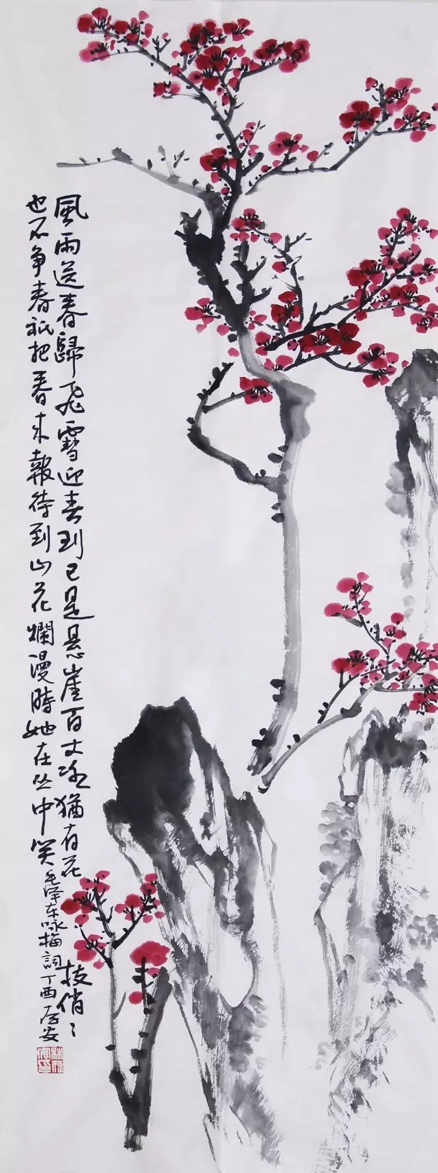 風雨送春歸飛雪迎春到已是悬崖百丈冰猶有花枝俏〻
也不争春祇把春来報待到山花爛漫時她在丛中笑
毛澤东咏梅詞丁酉安